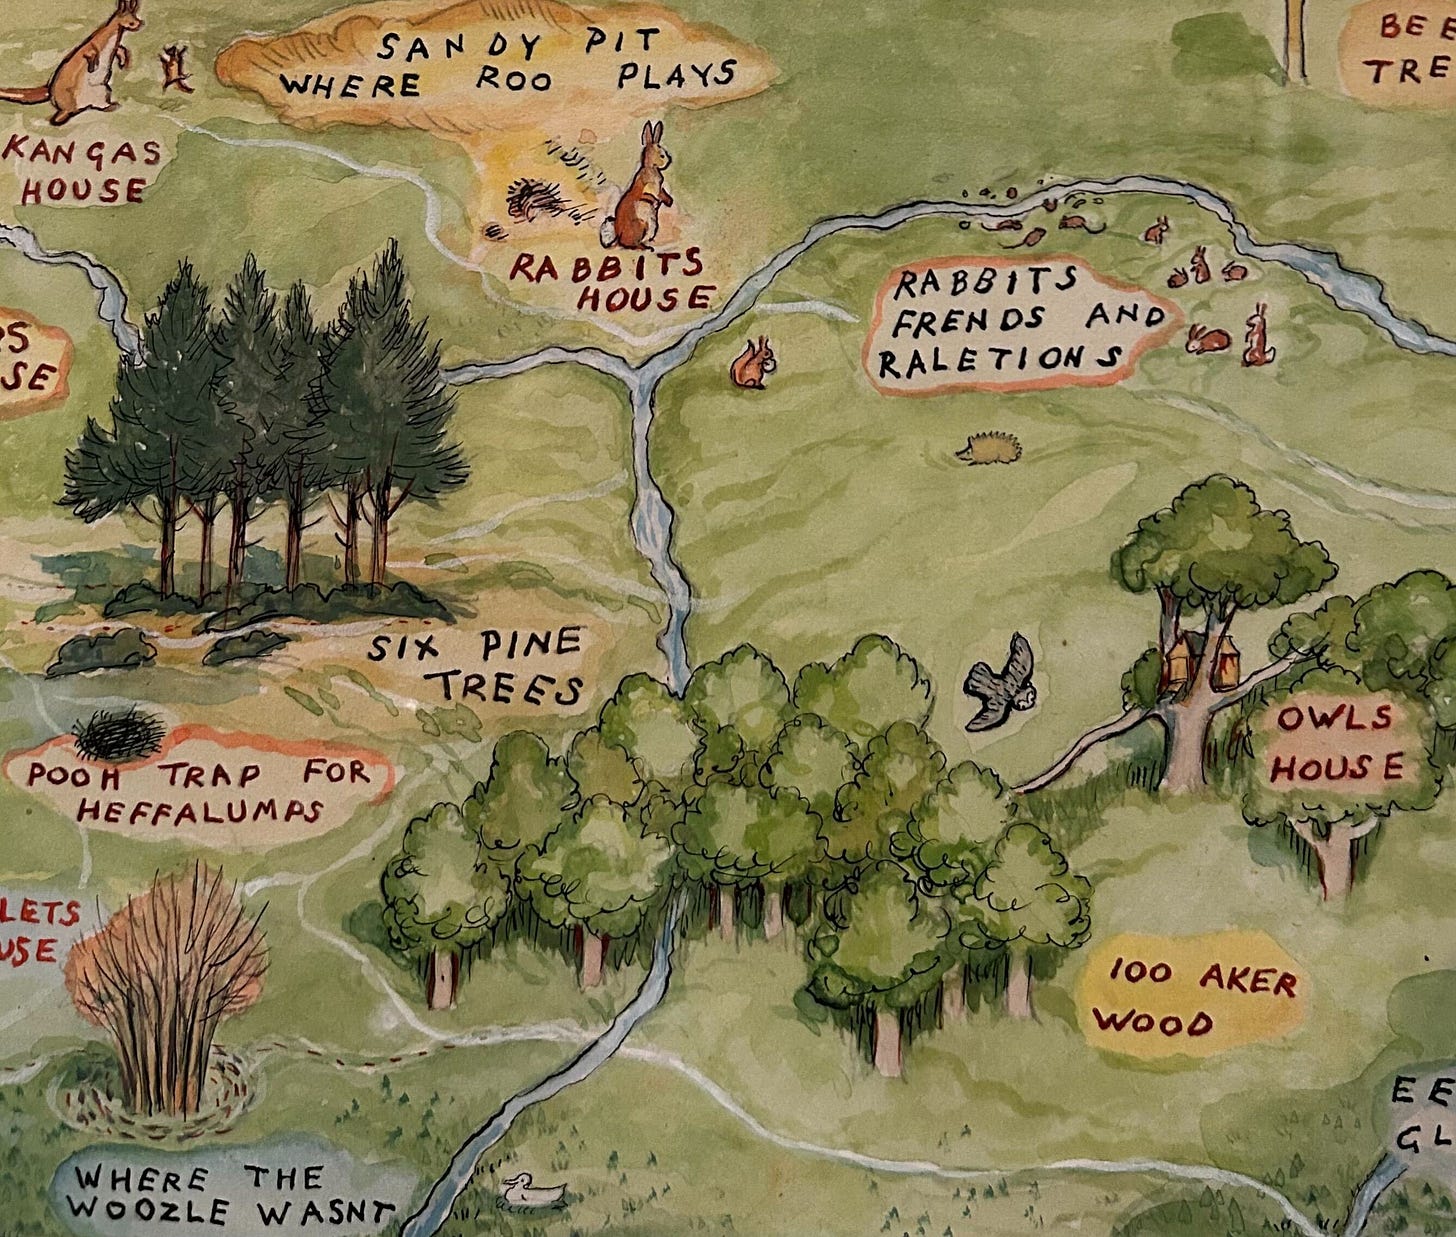 SANDY PIT
WHERE ROO PLAYS
BEE
TRE
KANGAS
HOUSE
RABBITS
HOUSE
RABBITS
FRENDS AND
RALETIONS
PS
SE
SIX PINE
TREES
OWLS
HOUSE
POOH TRAP FOR
HEFFALUMPS
LETS
USE
100 AKER
WOOD
EE
GL
WHERE THE
WOOZLE WASNT